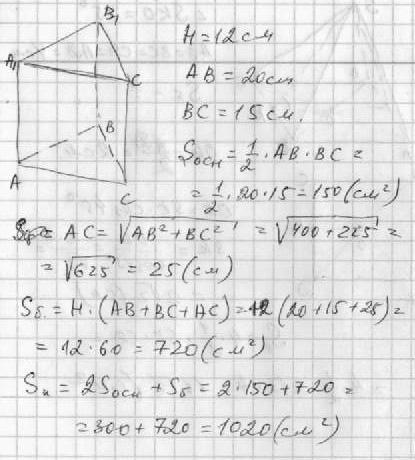 B₁
A₁
C
B
A
C
H = 12 см
AB = 20 см
BC = 15 см.
Sосн = 1/2 · AB · BC =
= 1/2 · 20 · 15 = 150 (см²)
AC = √(AB² + BC²) = √(400 + 225) =
= √625 = 25 (см)
Sб. = H · (AB + BC + AC) = 12 (20 + 15 + 25) =
= 12 · 60 = 720 (см²)
Sп = 2Sосн + Sб = 2 · 150 + 720 =
= 300 + 720 = 1020 (см²)